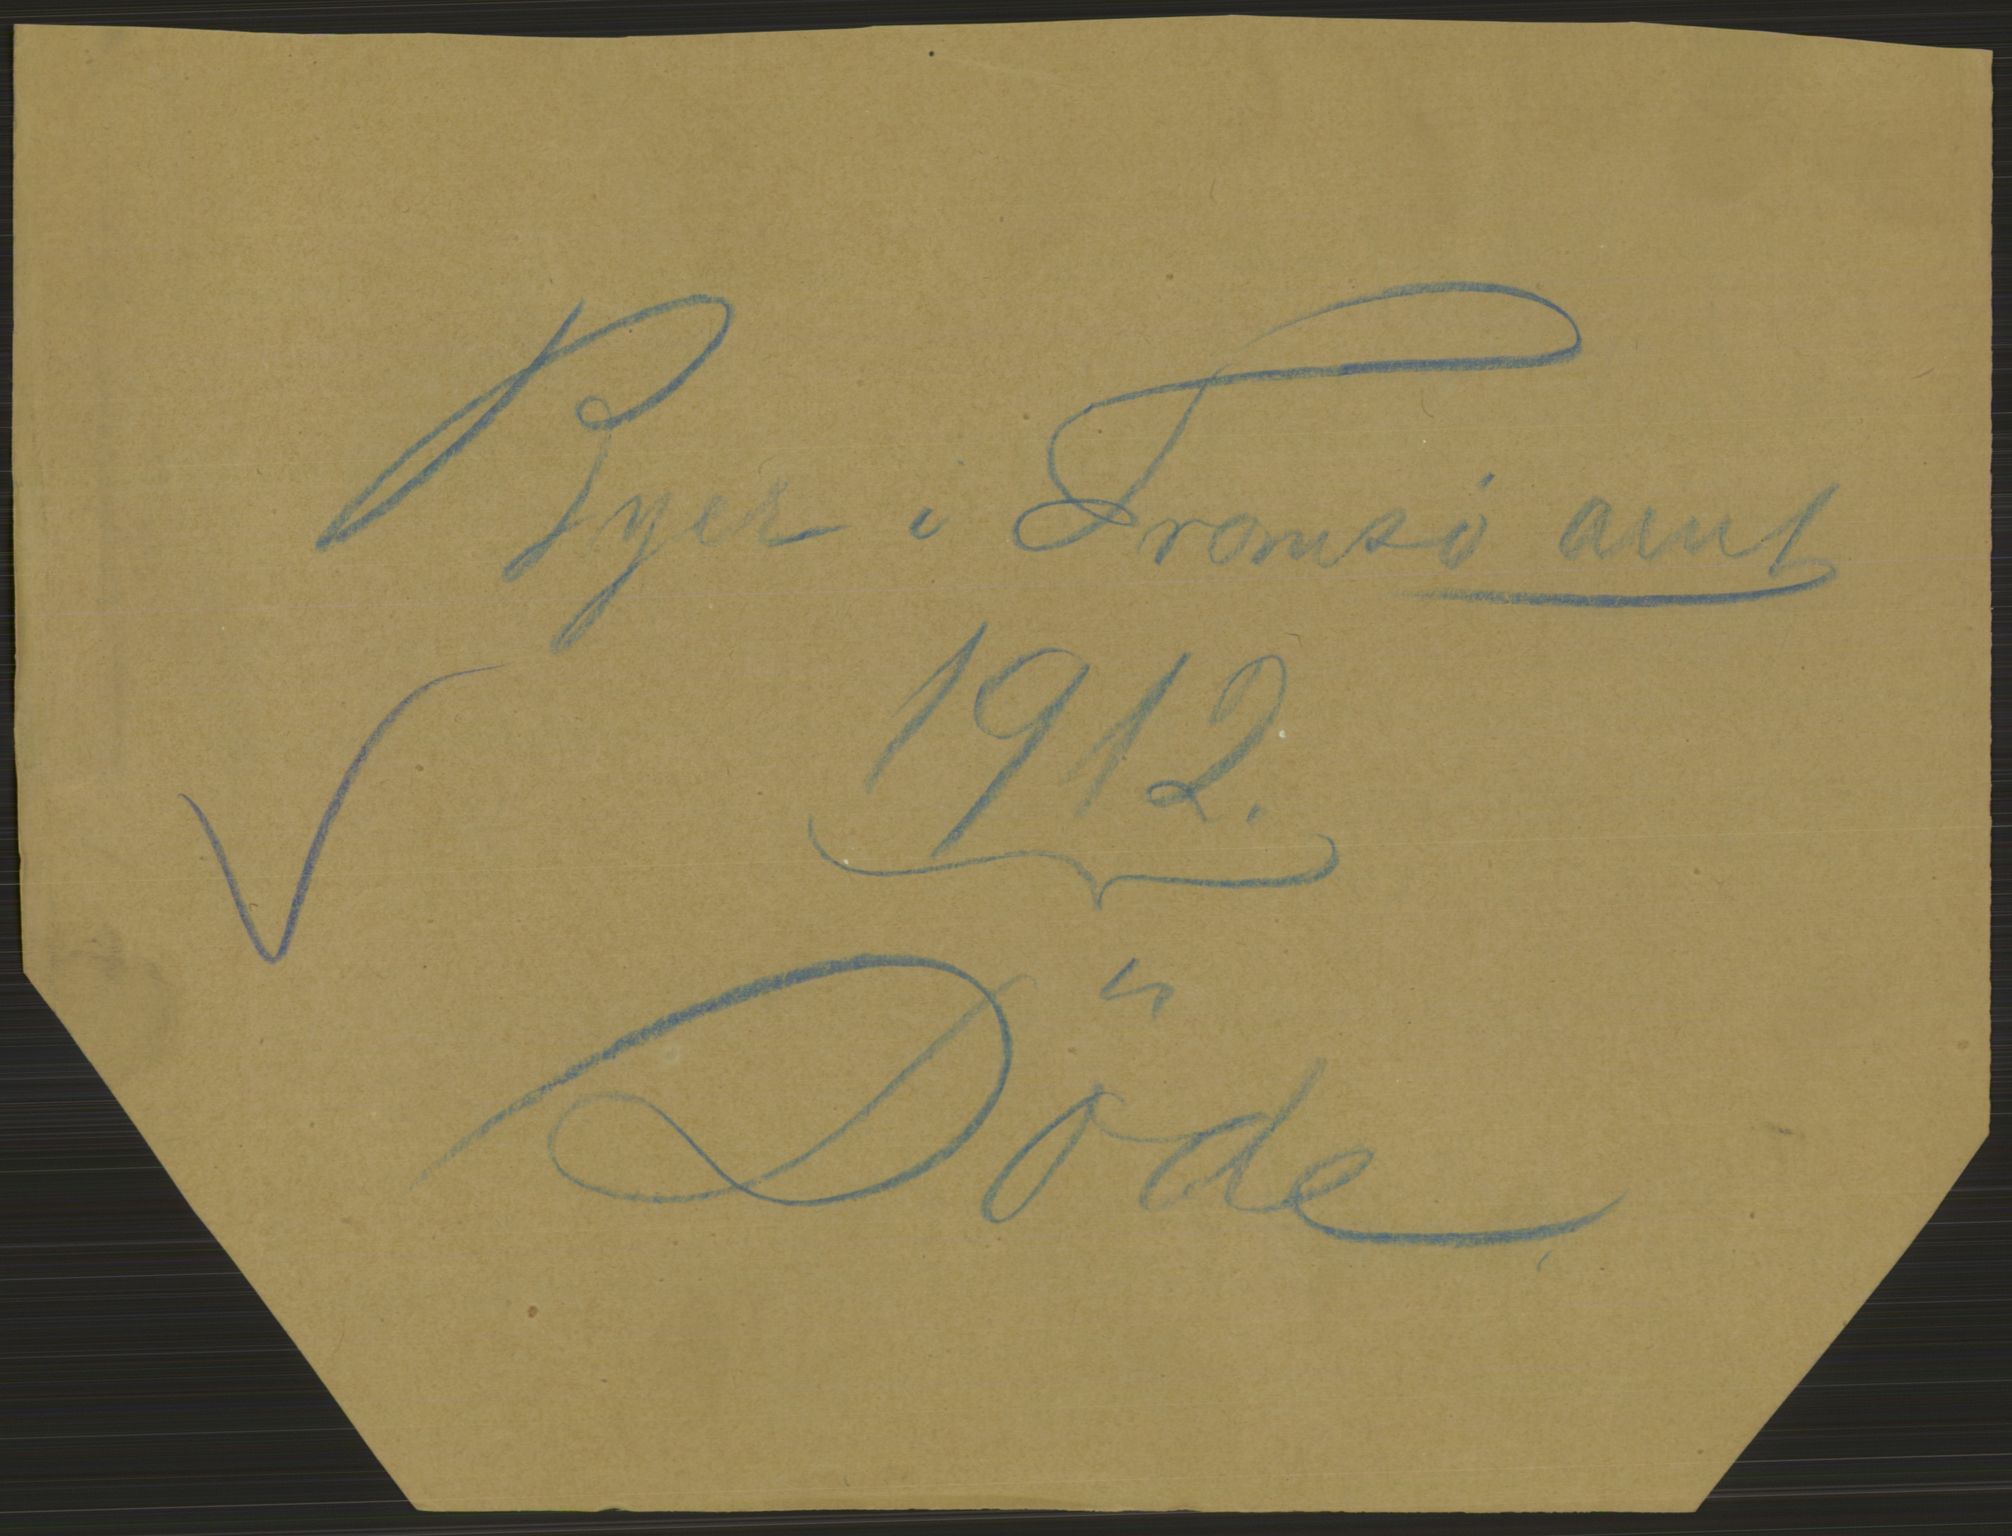 Byer i Tromsö amt
1912.
Döde